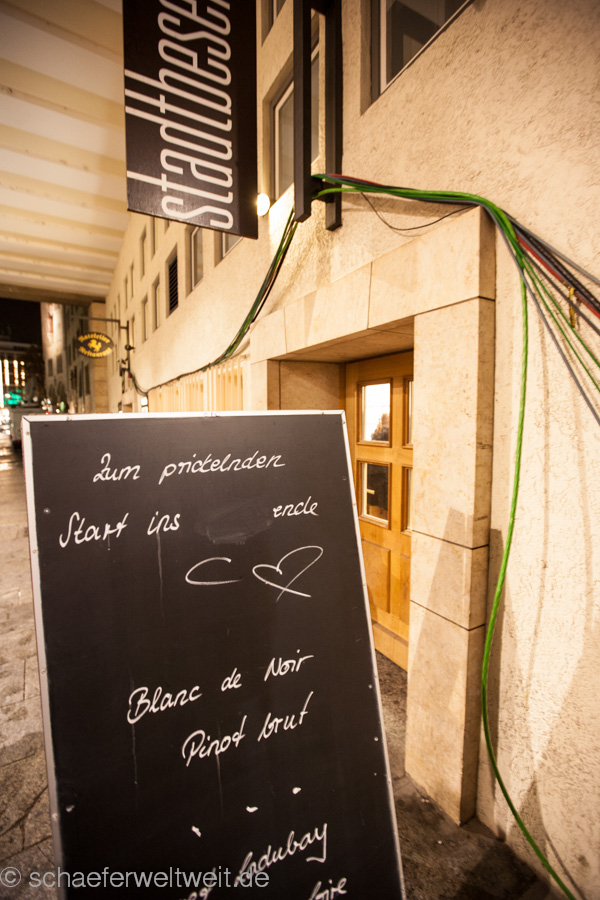 stadtbese
Ratskeller
Zum prickelnden
Start ins ende
Blanc de Noir
Pinot brut
© schaeferweltweit.de